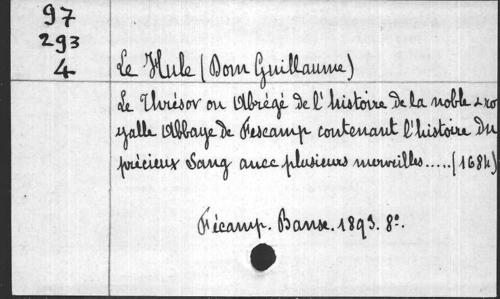 97
293
4
Le Hule (Dom Guillaume)
Le Thrésor ou Abrégé de l'histoire de la noble & ro
yalle Abbaye de Fescamp contenant l'histoire du
précieux Sang avec plusieurs merveilles.....(1684)
Fécamp. Banse. 1893. 8º.